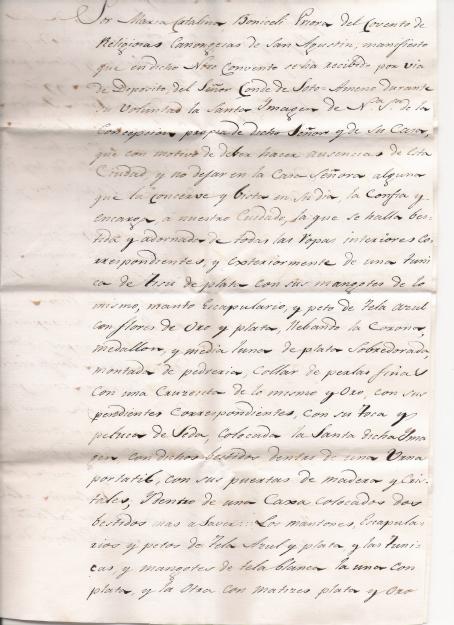 Sor Maria Catalina Boniceli Priora del Covento de
Religiosas Canongesas de San Agustin, manifiesto
que en dicho Nro Convento se ha recibido por via
de Deposito, del Señor Conde de Soto Ameno durante
su Voluntad la Santa Imagen de Na. Sra. de la
Concepcion propia de dicho Señor y de su Casa,
que con motivo de deber hacer ausencias de esta
Ciudad y no dejar en la Casa Señora alguna
que la conserve y bista en su dia, la Confia y
encarga a nuestro Cuidado, la que se halla bes
tida y adornada de todas las Ropas interiores co
rrespondientes, y exteriormente de una tuni
ca de tisu de plata con sus mangotes de lo
mismo, manto Escapulario, y peto de tela azul
con flores de Oro y plata, llebando la Corona,
medallon, y media luna de plata Sobredorada,
montada de pedreria, Collar de perlas finas
con una Cruzesita de lo mismo y Oro, con sus
pendientes Correspondientes, con su toca y
peluca de Seda, colocada la Santa dicha Ima
gen con dichos bestidos dentro de una Urna
portatil, con sus puertas de madera y Cris
tales, y dentro de una Caxa colocados dos
bestidos mas a Saver: Los mantones, Escapula
rios y petos de tela Azul y plata y las tuni
cas, y mangotes de tela blanca la una con
plata, y la Otra con matizes plata y Oro